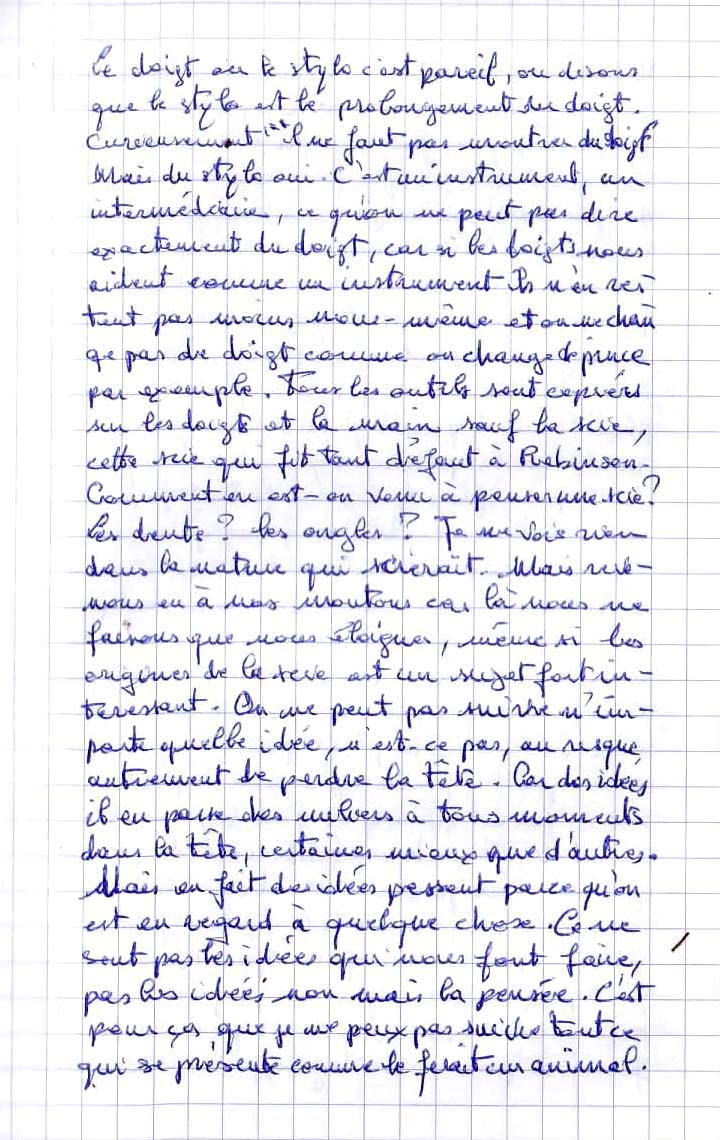 Le doigt ou le stylo c'est pareil, ou disons
que le stylo est le prolongement du doigt.
Curieusement il ne faut pas montrer du doigt
Mais du stylo oui. C'est un instrument, un
intermédiaire, ce qu'on ne peut pas dire
exactement du doigt, car si les doigts nous
aident comme un instrument ils n'en res
tent pas moins nous-même et on ne chan
ge pas de doigt comme on change de pince
par exemple. Tous les outils sont copiés
sur les doigts et la main sauf la scie,
cette scie qui fit tant défaut à Robinson.
Comment en est-on venu à penser une scie?
Les dents? Les ongles? Je ne vois rien
dans la nature qui scierait. Mais reve-
nous en à nos moutons car là nous ne
faisons que nous éloigner, même si les
origines de la scie est un sujet fort in-
téressant. On ne peut pas suivre n'im-
porte quelle idée, n'est-ce pas, au risque
autrement de perdre la tête. Car des idées
il en passe des milliers à tous moments
dans la tête, certaines mieux que d'autres.
Mais en fait des idées passent parce qu'on
est en regard à quelque chose. Ce ne
sont pas les idées qui nous font faire,
pas les idées non mais la pensée. C'est
pour ça que je ne peux pas suivre tout ce
qui se présente comme le ferait un animal.